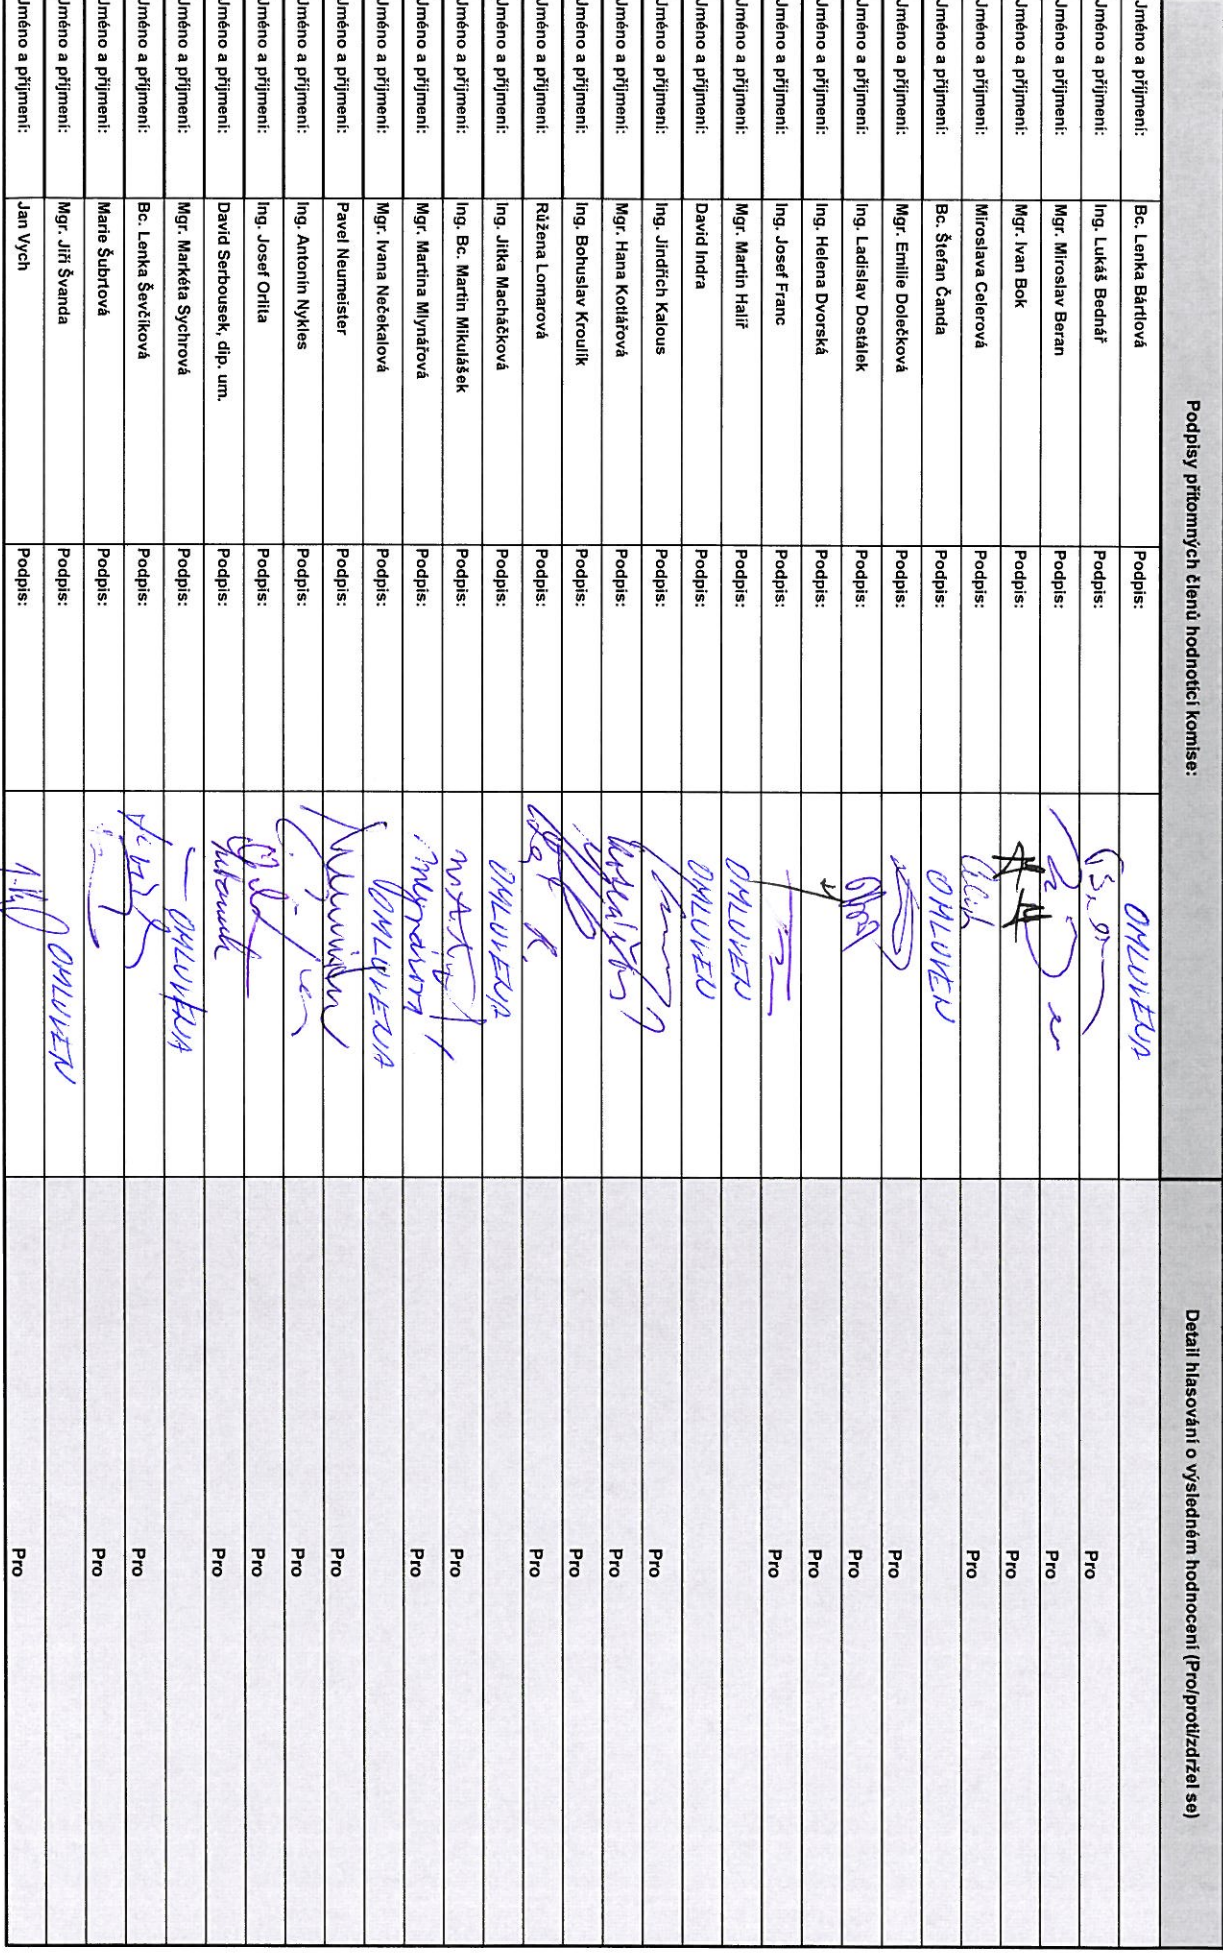 Podpisy přítomných členů hodnotící komise: Detail hlasování o výsledném hodnocení (Pro/proti/zdržel se)
Jméno a příjmení: Bc. Lenka Bártlová Podpis: OMLUVENA
Jméno a příjmení: Ing. Lukáš Bednář Podpis: Pro
Jméno a příjmení: Mgr. Miroslav Beran Podpis: Pro
Jméno a příjmení: Mgr. Ivan Bok Podpis: Pro
Jméno a příjmení: Miroslava Celerová Podpis: Pro
Jméno a příjmení: Bc. Štefan Čanda Podpis: OMLUVEN
Jméno a příjmení: Mgr. Emilie Dolečková Podpis: Pro
Jméno a příjmení: Ing. Ladislav Dostálek Podpis: Pro
Jméno a příjmení: Ing. Helena Dvorská Podpis: Pro
Jméno a příjmení: Ing. Josef Franc Podpis: Pro
Jméno a příjmení: Mgr. Martin Halíř Podpis: OMLUVEN
Jméno a příjmení: David Indra Podpis: OMLUVEN
Jméno a příjmení: Ing. Jindřich Kalous Podpis: Pro
Jméno a příjmení: Mgr. Hana Kotlářová Podpis: Pro
Jméno a příjmení: Ing. Bohuslav Kroulík Podpis: Pro
Jméno a příjmení: Růžena Lomarová Podpis: Pro
Jméno a příjmení: Ing. Jitka Macháčková Podpis: OMLUVENA
Jméno a příjmení: Ing. Bc. Martin Mikulášek Podpis: Pro
Jméno a příjmení: Mgr. Martina Mlynářová Podpis: Pro
Jméno a příjmení: Mgr. Ivana Nečekalová Podpis: OMLUVENA
Jméno a příjmení: Pavel Neumeister Podpis: Pro
Jméno a příjmení: Ing. Antonín Nykles Podpis: Pro
Jméno a příjmení: Ing. Josef Orlita Podpis: Pro
Jméno a příjmení: David Serbousek, dip. um. Podpis: Pro
Jméno a příjmení: Mgr. Markéta Sychrová Podpis: OMLUVENA
Jméno a příjmení: Bc. Lenka Ševčíková Podpis: Pro
Jméno a příjmení: Marie Šubrtová Podpis: Pro
Jméno a příjmení: Mgr. Jiří Švanda Podpis: OMLUVEN
Jméno a příjmení: Jan Vych Podpis: Pro